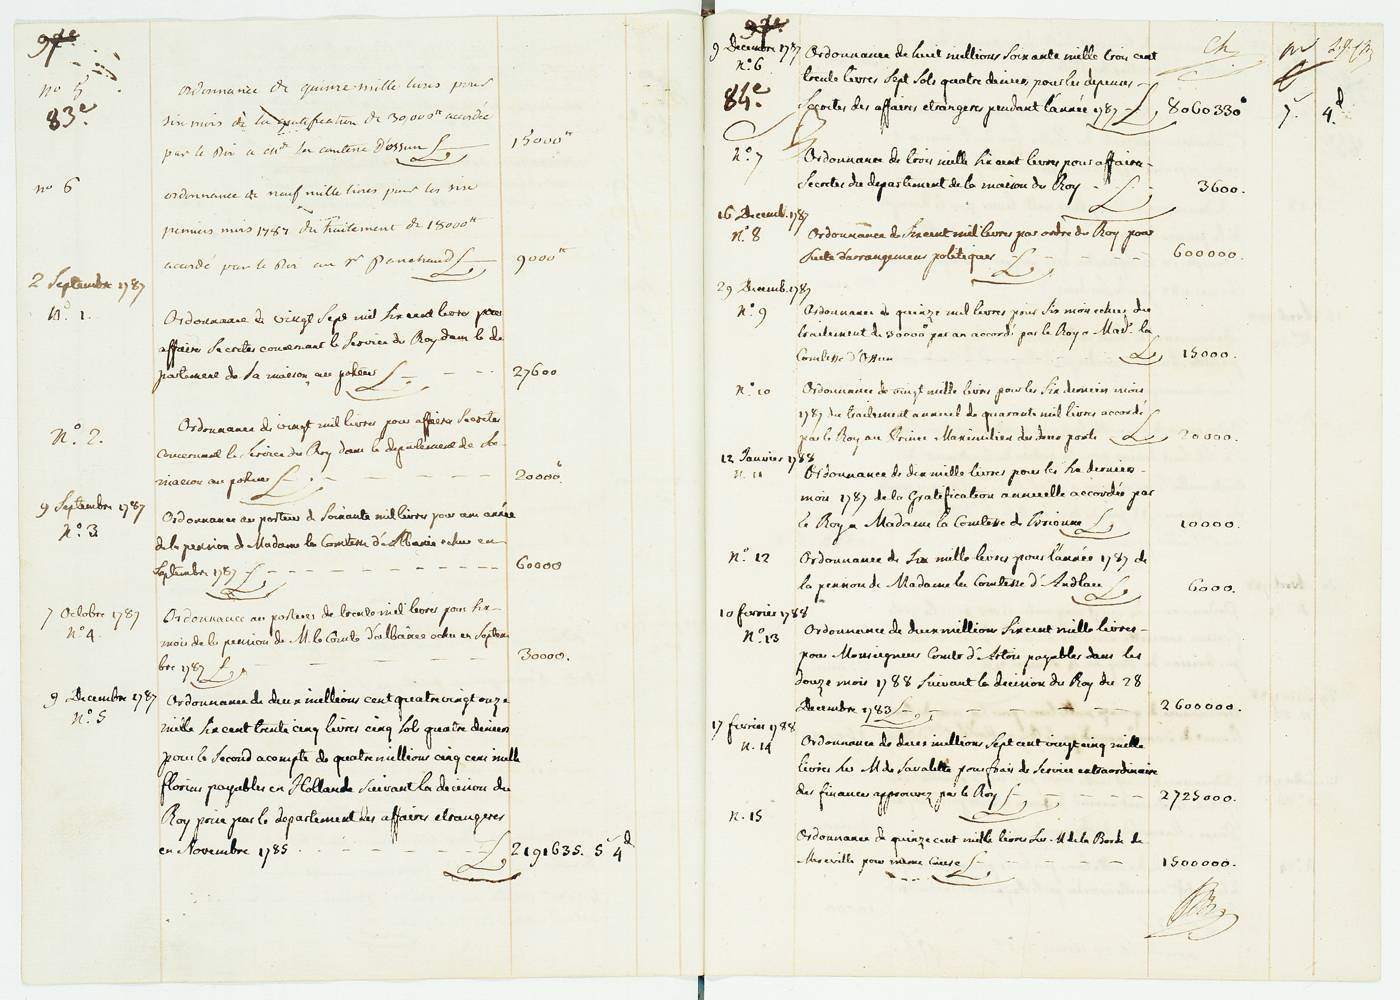 97e
no 5
83e
ordonnance de quinze mille livres pour
six mois de la gratification de 30,000tt accordée
par le Roi a Mde la comtesse D'ossun
15000tt
no 6
ordonnance de neuf mille livres pour les six
premiers mois 1787 du traitement de 18000tt
accordé par le Roi au Sr Panchaud
9000tt
2 Septembre 1787
No. 1.
Ordonnance de vingt Sept mil Six cent livres pour
affaires Secretes concernant le Service du Roy dans le de
partement de Sa maison au porteur
27600
No. 2.
Ordonnance de vingt mil livres pour affaires Secretes
concernant le Service du Roy dans le departement de Sa
maison au porteur
20000
9 Septembre 1787
No. 3
Ordonnance au porteur de Soixante mil livres pour une année
de la pension de Madame la Comtesse d'Albanie echue en
Septembre 1787
60000
7 Octobre 1787
No 4.
Ordonnance au porteur de trente mil livres pour Six
mois de la pension de M. le Comte d'albanie echu en Septem
bre 1787
30000.
9 Decembre 1787
No. 5
Ordonnance de deux millions cent quatre vingt onze
mille Six cent trente cinq livres cinq Sols quatre deniers
pour le Second acompte de quatre millions cinq cent mille
florins payables en Hollande Suivant la decision du
Roy prise par le departement des affaires etrangeres
en Novembre 1785
2191635. 5 4d
97e
9 Decembre 1787
No. 6
84e.
Ordonnance de huit millions Soixante mille trois cent
trente livres Sept Sols quatre deniers, pour les depenses
Secretes des affaires etrangeres pendant l'année 1787
8060330 7. 4d
No. 7
Ordonnance de trois mille Six cent livres pour affaires
Secretes du departement de la maison du Roy
3600.
16 Decemb. 1787
No. 8
Ordonnance de Six cent mil livres par ordre du Roy pour
Suite d'arrangemens politiques
600000.
29 Decemb. 1787
No. 9
Ordonnance de quinze mil livres pour Six mois echus du
traitement de 30000 par an accordé par le Roy a Made. la
Comtesse d'Ossun
15000.
No. 10
Ordonnance de vingt mille livres pour les Six derniers mois
1787 du traitement annuel de quarante mil livres accordé
par le Roy au Prince Maximilien des deux ponts
20000.
12 Janvier 1788
N. 11
Ordonnance de dix mille livres pour les Six derniers
mois 1787 de la Gratification annuelle accordée par
le Roy a Madame la Comtesse de
10000.
No. 12
Ordonnance de Six mille livres pour l'année 1787 de
la pension de Madame la Comtesse d'Andlau
6000.
10 fevrier 1788
No. 13
Ordonnance de deux millions Six cent mille livres
pour Monseigneur Comte d'Artois payables dans les
douze mois 1788 Suivant la decision du Roy du 28
Decembre 1783
2600000.
17 fevrier 1788
N. 14
Ordonnance de deux millions Sept cent vingt cinq mille
livres Sur M de Savalette pour frais de Service extraordinaire
des finances approuvez par le Roy
2725000.
N. 15
Ordonnance de quinze cent mille livres Sur M de la Borde de
Mereville pour meme Cause
1500000.